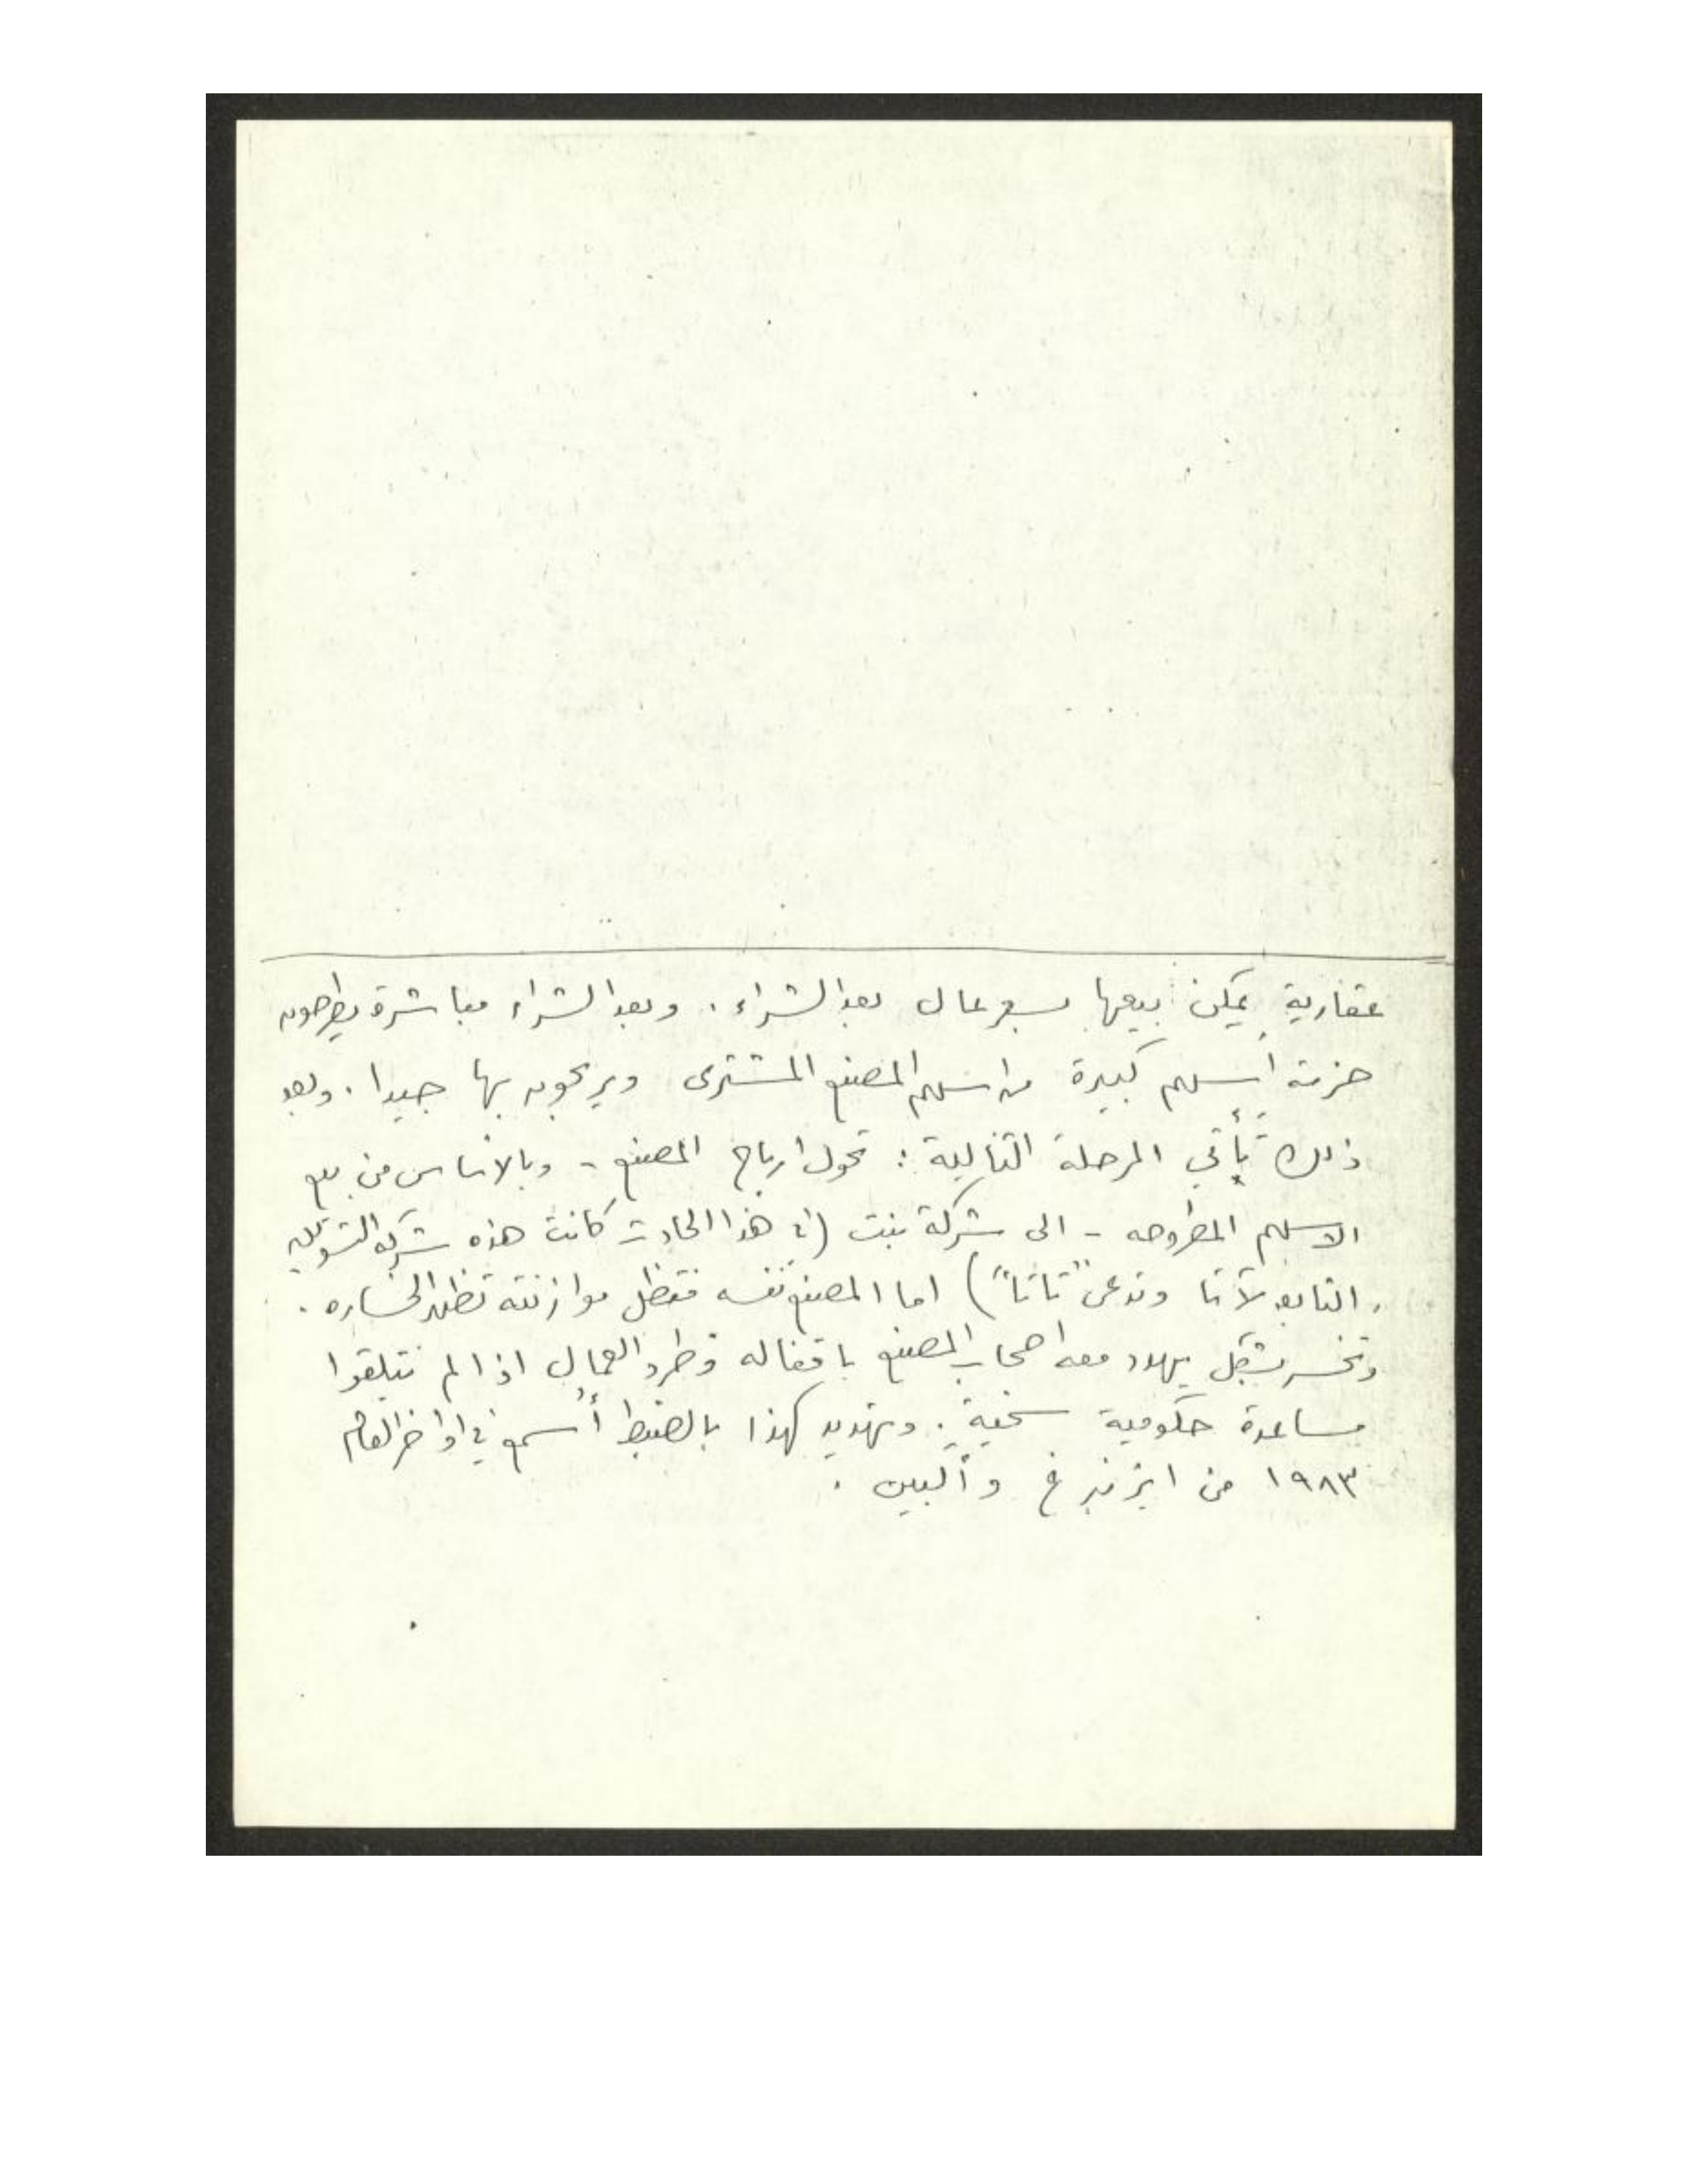 عقارية يمكن بيعها بسعر عال بعد الشراء. وبعد الشراء مباشرة يطرحون
حزمة أسهم كبيرة من اسهم المصنع المشترى ويربحون بها جيدا. وبعد
ذلك تأتي المرحلة التالية: تحول ارباح المصنع - وبالاساس من بيع
الاسهم المطروحه - الى شركة بنت (في هذا الحادث كانت هذه شركة التسويق
التابعه لآتا وتدعى "تاتا") اما المصنع نفسه فتظل موازنته تظهر الخساره.
وتخسر بشكل يهدد معه اصحاب المصنع باقفاله وطرد العمال اذا لم يتلقوا
مساعدة حكومية سخية. وتهديد كهذا بالضبط أُسمع في اواخر العام
١٩٨٣ من ايزنبرغ وألبين.